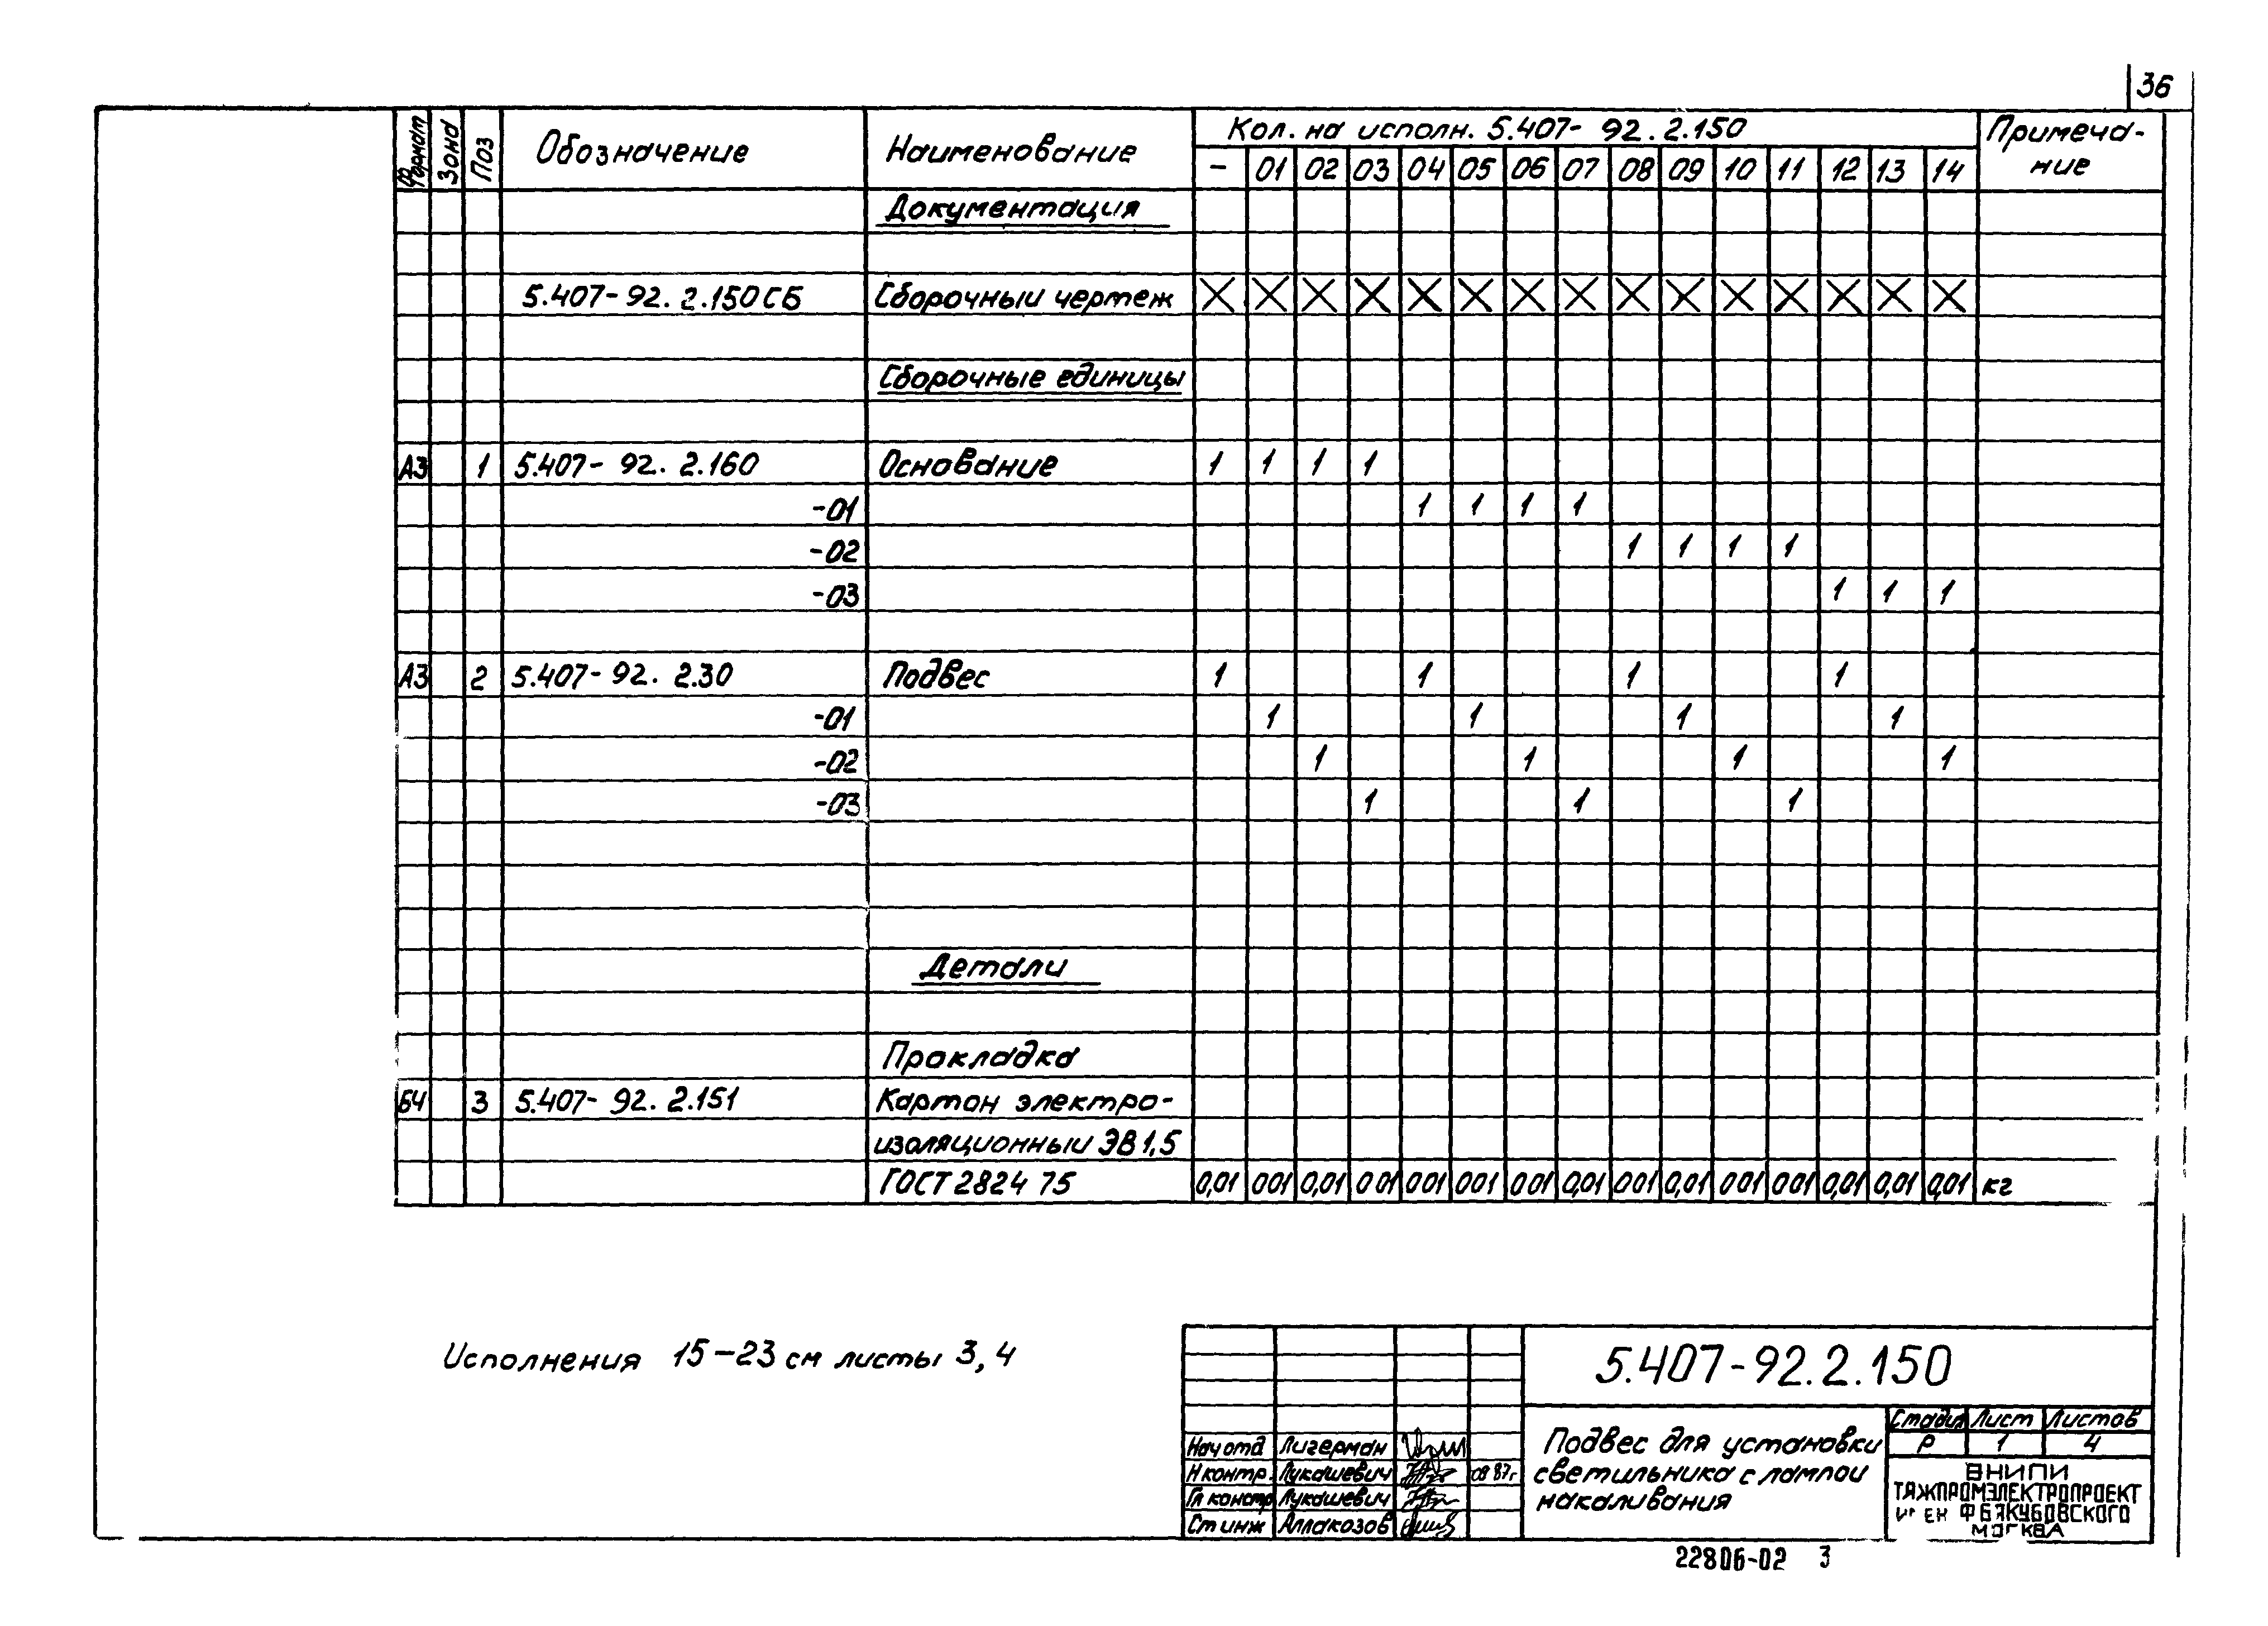 36
Формат Зона Поз Обозначение Наименование Кол. на исполн. 5.407-92.2.150 Примеча-
ние
– 01 02 03 04 05 06 07 08 09 10 11 12 13 14
Документация
5.407-92.2.150СБ Сборочный чертеж X X X X X X X X X X X X X X X
Сборочные единицы
А3 1 5.407-92.2.160 Основание 1 1 1 1
-01 1 1 1 1
-02 1 1 1 1
-03 1 1 1
А3 2 5.407-92.2.30 Подвес 1 1 1 1
-01 1 1 1 1
-02 1 1 1 1
-03 1 1 1
Детали
Прокладка
БЧ 3 5.407-92.2.151 Картон электро-
изоляционный ЭВ1,5
ГОСТ 2824 75 0,01 001 0,01 001 001 001 001 0,01 001 0,01 001 001 0,01 0,01 0,01 кг
Исполнения 15-23 см листы 3,4
5.407-92.2.150
Подвес для установки
светильника с лампой
накаливания
Стадия Лист Листов
Р 1 4
Нач отд Лигерман
Н контр. Лукашевич 08 87г
Гл констр Лукашевич
Ст инж Аллакозов
ВНИПИ
ТЯЖПРОМЭЛЕКТРОПРОЕКТ
Ф Б ЯКУБОВСКОГО
МОСКВА
22806-02 3